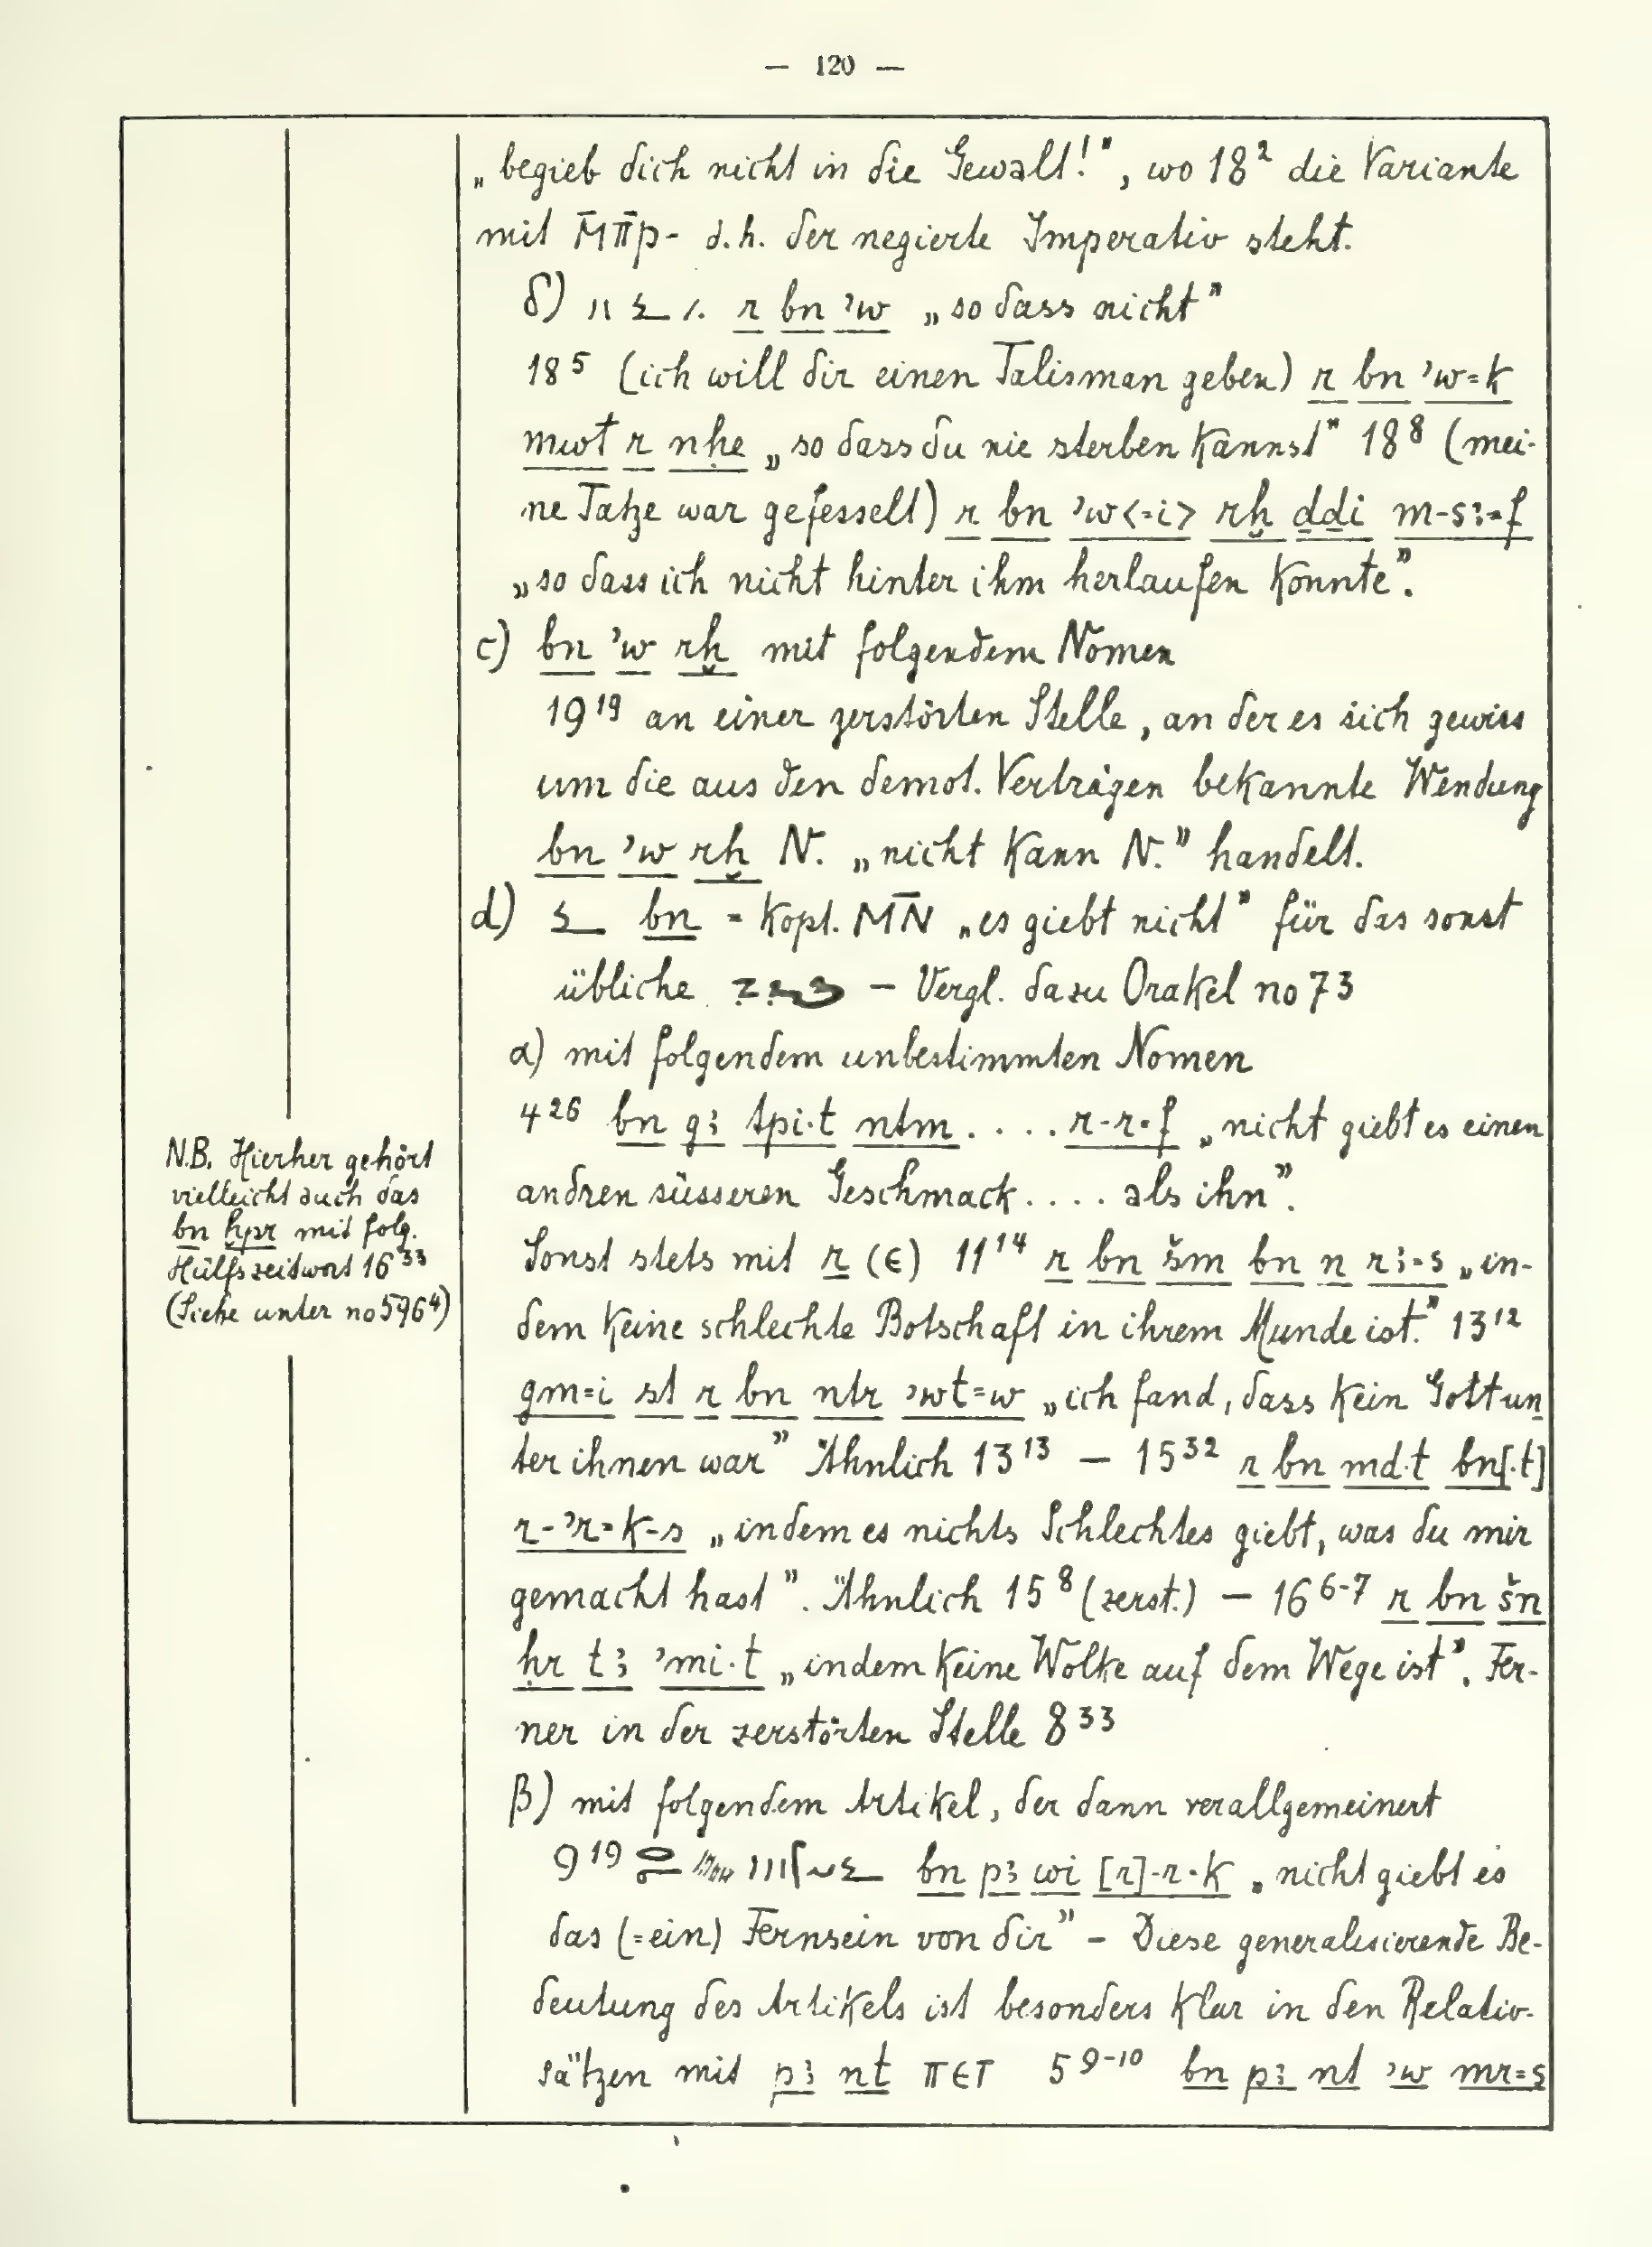 — 120 —
„begieb dich nicht in die Gewalt!", wo 18² die Variante
mit M̄π̄p- d.h. der negierte Imperativ steht.
δ) r bn ʾw „so dass nicht"
18⁵ (ich will dir einen Talisman geben) r bn ʾw=k
mwt r nḥe „so dass du nie sterben kannst" 18⁸ (mei-
ne Tatze war gefesselt) r bn ʾw<=i> rḫ ḏḏi m-sꜣ=f
„so dass ich nicht hinter ihm herlaufen konnte".
c) bn ʾw rḫ mit folgendem Nomen
19¹⁹ an einer zerstörten Stelle, an der es sich gewiss
um die aus den demot. Verträgen bekannte Wendung
bn ʾw rḫ N. „nicht kann N." handelt.
d) bn = kopt. M̄N̄ „es giebt nicht" für das sonst
übliche – Vergl. dazu Orakel no 73
α) mit folgendem unbestimmten Nomen
4²⁶ bn gꜣ tpi·t nṯm . . . . r-r=f „nicht giebt es einen
andren süsseren Geschmack . . . . als ihn".
Sonst stets mit r (ϵ) 11¹⁴ r bn šm bn n rꜣ=s „in-
dem keine schlechte Botschaft in ihrem Munde ist." 13¹²
gm=i st r bn ntr ʾwt=w „ich fand, dass kein Gott un
ter ihnen war" Ähnlich 13¹³ — 15³² r bn md·t bn[·t]
r-ʾr=k-s „indem es nichts Schlechtes giebt, was du mir
gemacht hast". Ähnlich 15⁸ (zerst.) — 16⁶⁻⁷ r bn šn
ḥr tꜣ ʾmi·t „indem keine Wolke auf dem Wege ist". Fer-
ner in der zerstörten Stelle 8³³
β) mit folgendem Artikel, der dann verallgemeinert
9¹⁹ bn pꜣ wi [r]-r=k „nicht giebt es
das (=ein) Fernsein von dir" – Diese generalisierende Be-
deutung des Artikels ist besonders klar in den Relativ-
sätzen mit pꜣ nt πϵτ 5⁹⁻¹⁰ bn pꜣ nt ʾw mr=s
N.B. Hierher gehört
vielleicht auch das
bn ḫpr mit folg.
Hülfszeitwort 16³³
(Siehe unter no 596⁴)